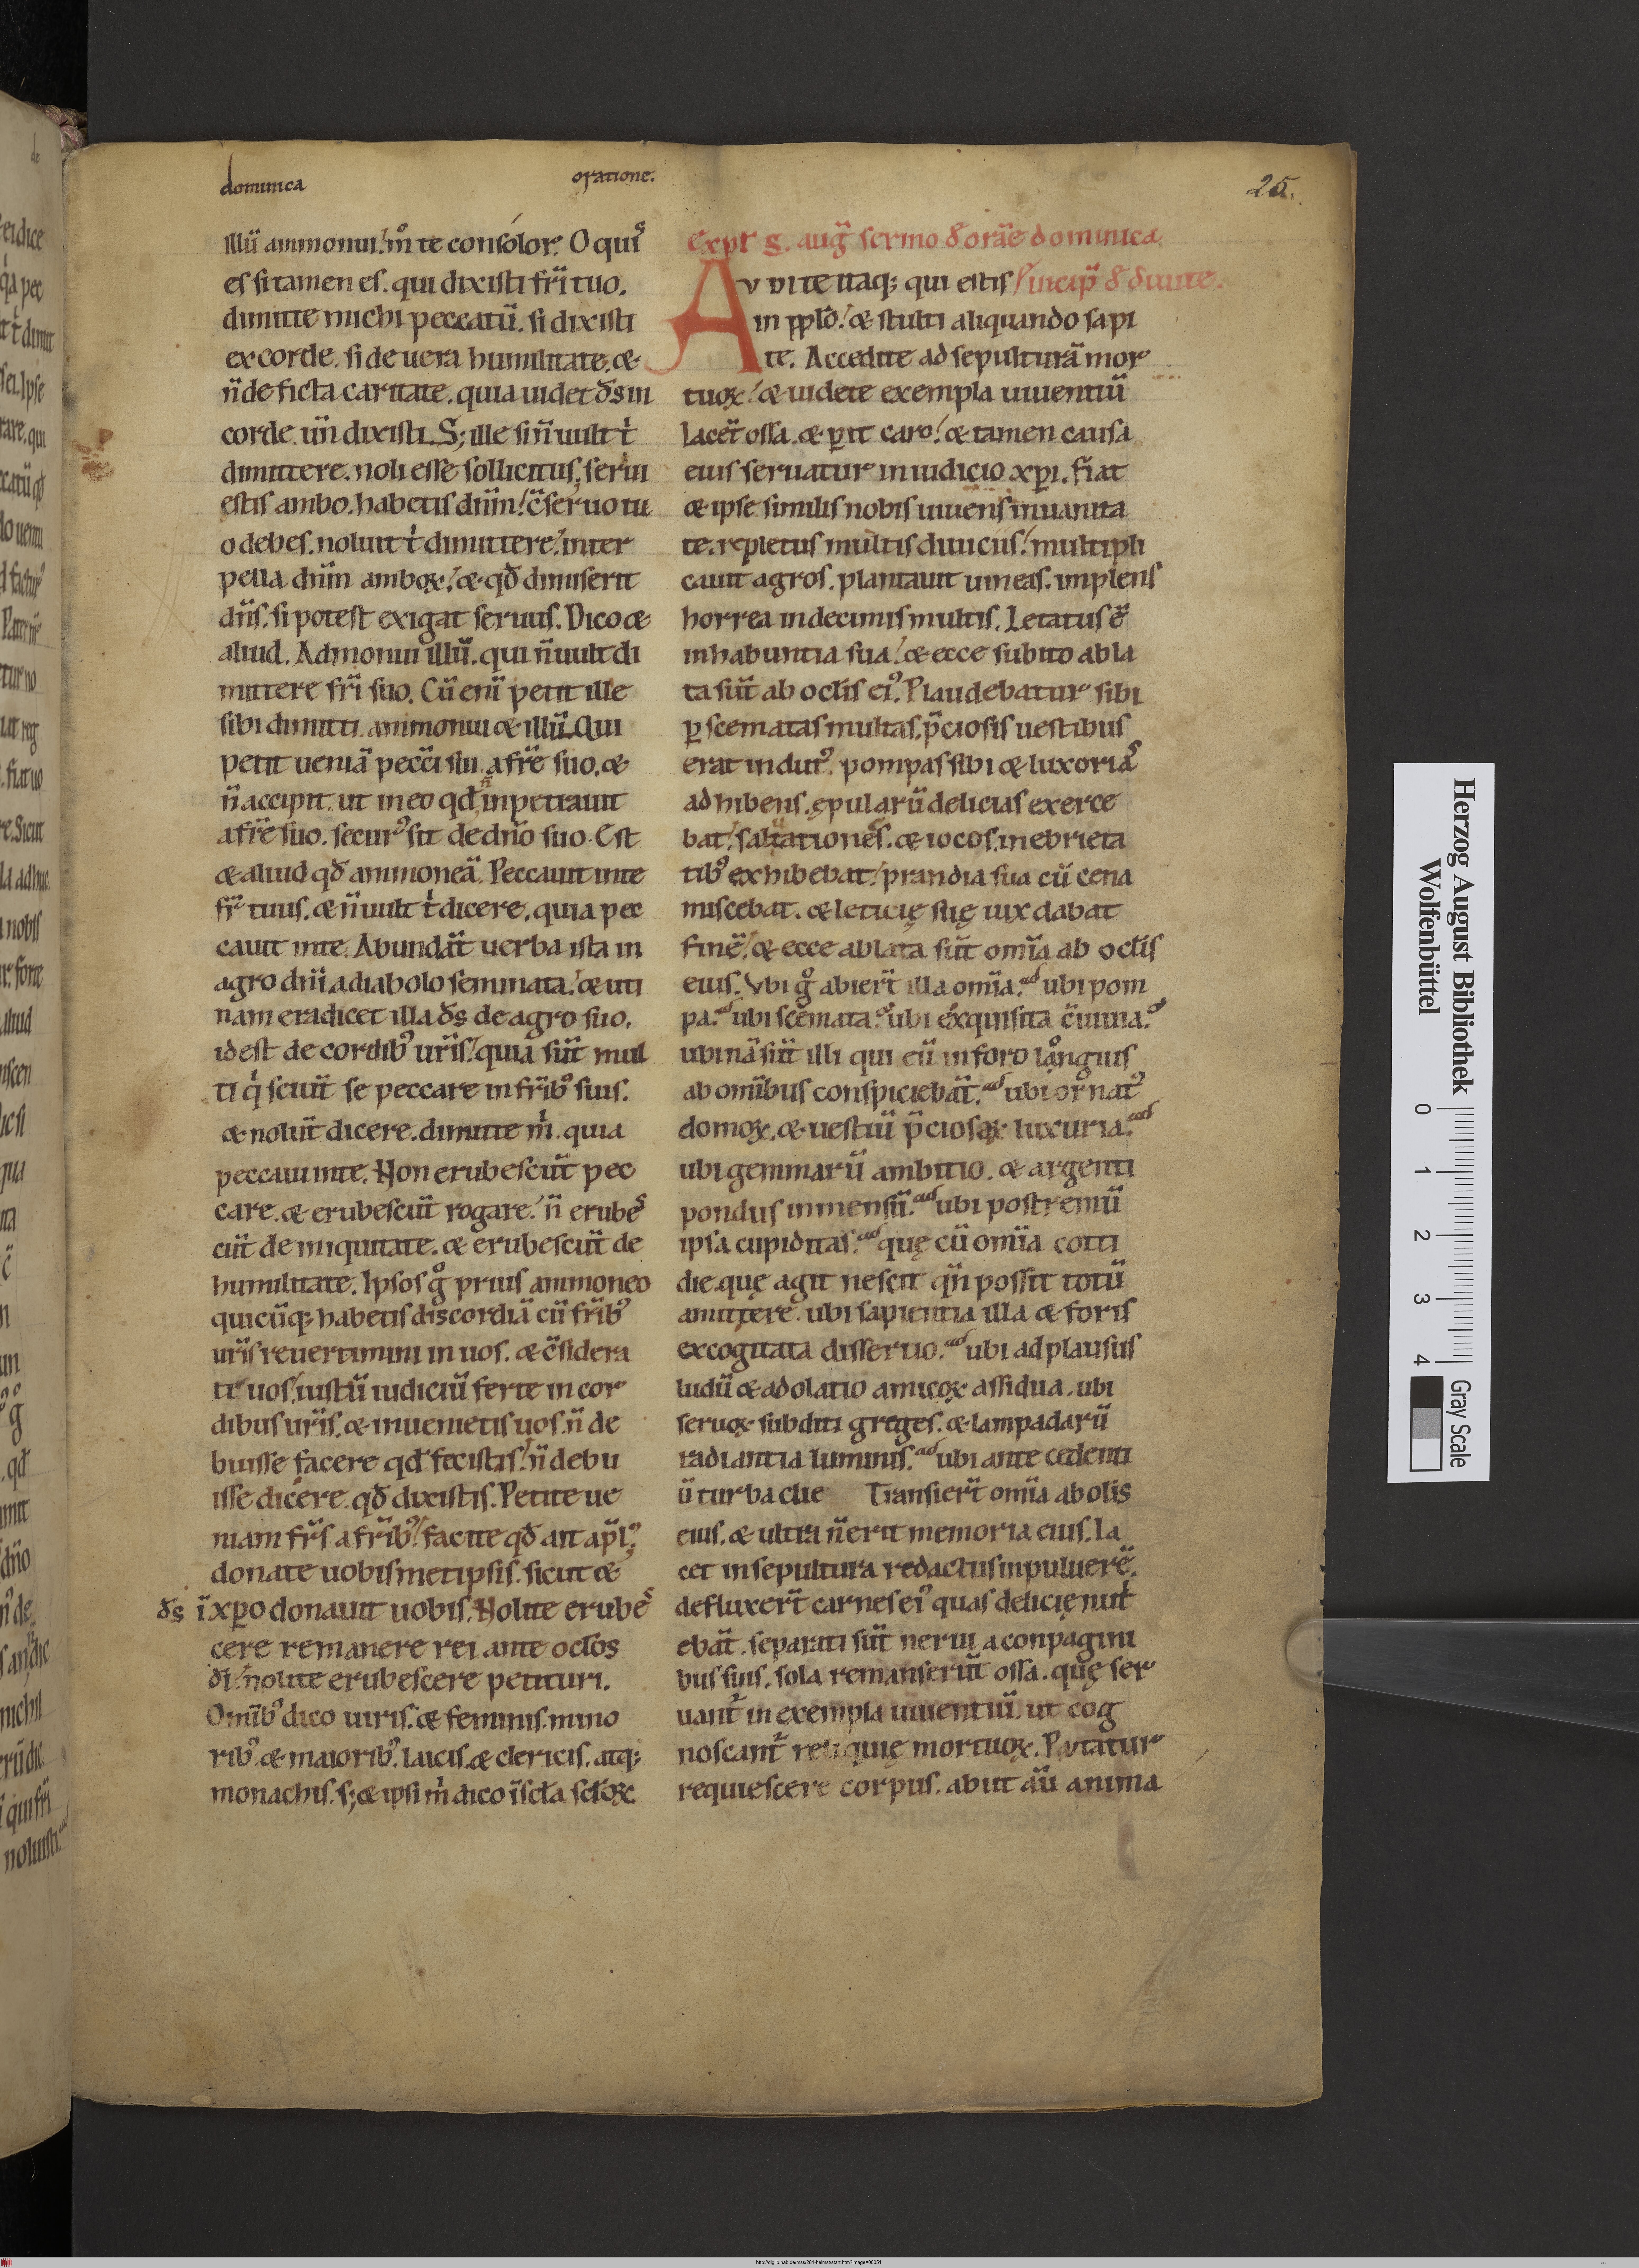 dominica oratione.
25.
illū ammonui! m̊ te consolor. O quis
es si tamen es. qui dixisti fr̄i tuo.
dimitte michi peccatū. si dixisti
ex corde. si de uera humilitate. &
n̄ de ficta caritate. quia uidet ds̄ in
corde. ūn dixisti. S; ille si n̄ uult t̍
dimittere. noli esse sollicitus, serui
estis ambo. habetis dn̄m! c̄seruo tu
o debes. noluit t̍ dimittere! inter
pella dn̄m amboꝝ! & qd̄ dimiserit
dn̄s. si potest exigat seruus. Dico &
aliud. Admonui illū. qui n̄ uult di
mittere fr̄i suo. Cū enī petit ille
sibi dimitti. ammonui & illū. Qui
petit ueniā pecc̄i sui. a fr̄e suo. &
n̄ accipit. ut in eo qd̄ n̄ inpetrauit
a fr̄e suo. secur᾽ sit de dn̄o suo. Est
& aliud qd̄ ammoneā. Peccauit in te
fr̄ tuus. & n̄ uult t̍ dicere. quia pec
caui in te. Abundāt uerba ista in
agro dn̄i a diabolo seminata! & uti
nam eradicet illa ds̄ de agro suo.
id est de cordib᾽ ur̄is! quia sūt mul
ti q̍ sciūt se peccare in fr̄ib᾽ suis.
& nolūt dicere. dimitte m̍. quia
peccaui in te. Non erubescūt pec
care. & erubescūt rogare! n̄ erubes
cūt de iniquitate. & erubescūt de
humilitate. Ipsos g̊ prius ammoneo
quicūq; habetis discordiā cū fr̄ib᾽
ur̄is reuertimini in uos. & c̄sidera
te uos, iustū iudiciū ferte in cor
dibus ur̄is. & inuenietis uos. n̄ de
buisse facere qd̄ fecistis! n̄ debu
isse dicere. qd̄ dixistis. Petite ue
niam fr̄s a fr̄ib᾽! facite qd̄ ait ap̄l᾽;
donate uobismetipsis. sicut &
ds̄ ī xp̄o donauit uobis. Nolite erubes
cere remanere rei ante ocl̄os
dī! nolite erubescere petituri.
Omīb᾽ dico uiris. & feminis. mino
rib᾽. & maiorib᾽. laicis. & clericis. atq;
monachis. s; & ipsi m̍ dico ī scl̄a scl̄oꝝ.
Expl̄ s. auḡ sermo d̄ orāe dominica.
AVDITE itaq; qui estis Incip̄ d̄ diuite.
in ppl̄o! & stulti aliquando sapi
te. Accedite ad sepulturā mor
tuoꝝ! & uidete exempla uiuentiū
Iacēt ossa. & ꝑit caro! & tamen causa
eius seruatur in iudicio xp̄i. Fiat
& ipse similis nobis uiuens in uanita
te. repletus multis diuicus! multipli
cauit agros. plantauit uineas. implens
horrea in decimis multis. Letatus ē
in habuntia sua! & ecce subito abla
ta sūt ab ocl̄is ei᾽. Plaudebatur sibi
ꝑ scematas multas, p̄ciosis uestibus
erat indut᾽. pompas sibi & luxorias
adhibens. ępularū delicias exerce
bat! saltationes. & iocos. in ebrieta
tib᾽ exhibebat! prandia sua cū cena
miscebat. & leticię suę uix dabat
finē! & ecce ablata sūt omīa ab ocl̄is
eius. Vbi g̊ abier̄t illa omīa. ubi pom
pa. ubi scemata. ubi exquisita c̄uiuia.
ubinā sūt illi qui eū in foro languis
ab omībus conspiciebāt. ubi ornat᾽
domoꝝ. & uestiū p̄ciosaꝝ luxuria.
ubi gemmarū ambitio. & argenti
pondus inmensū. ubi postremū
ipsa cupiditas. quę cū omīa cotti
die. quę agit nescit qn̄ possit totū
amittere. ubi sapientia illa & foris
excogitata dissertio. ubi adplausus
ludū & adolatio amicoꝝ assidua. ubi
seruoꝝ subditi greges. & lampadarū
radiantia luminis. ubi ante cedenti
ū turba clie Transier̄t omīa ab olis
eius. & ultra n̄ erit memoria eius. Ia
cet in sepultura redactus in puluerē.
defluxer̄t carnes ei᾽ quas delicię nut̍
ebāt. separati sūt nerui a conpagini
bus suis. sola remanserūt ossa. quę ser
uant̄ in exempla uiuentiū. ut cog
noscant̄ reliquię mortuoꝝ. Putatur
requiescere corpus. abiit aū anima
Herzog August Bibliothek
Wolfenbüttel
0 1 2 3 4
Gray Scale
http://diglib.hab.de/mss/281-helmst/start.htm?image=00051